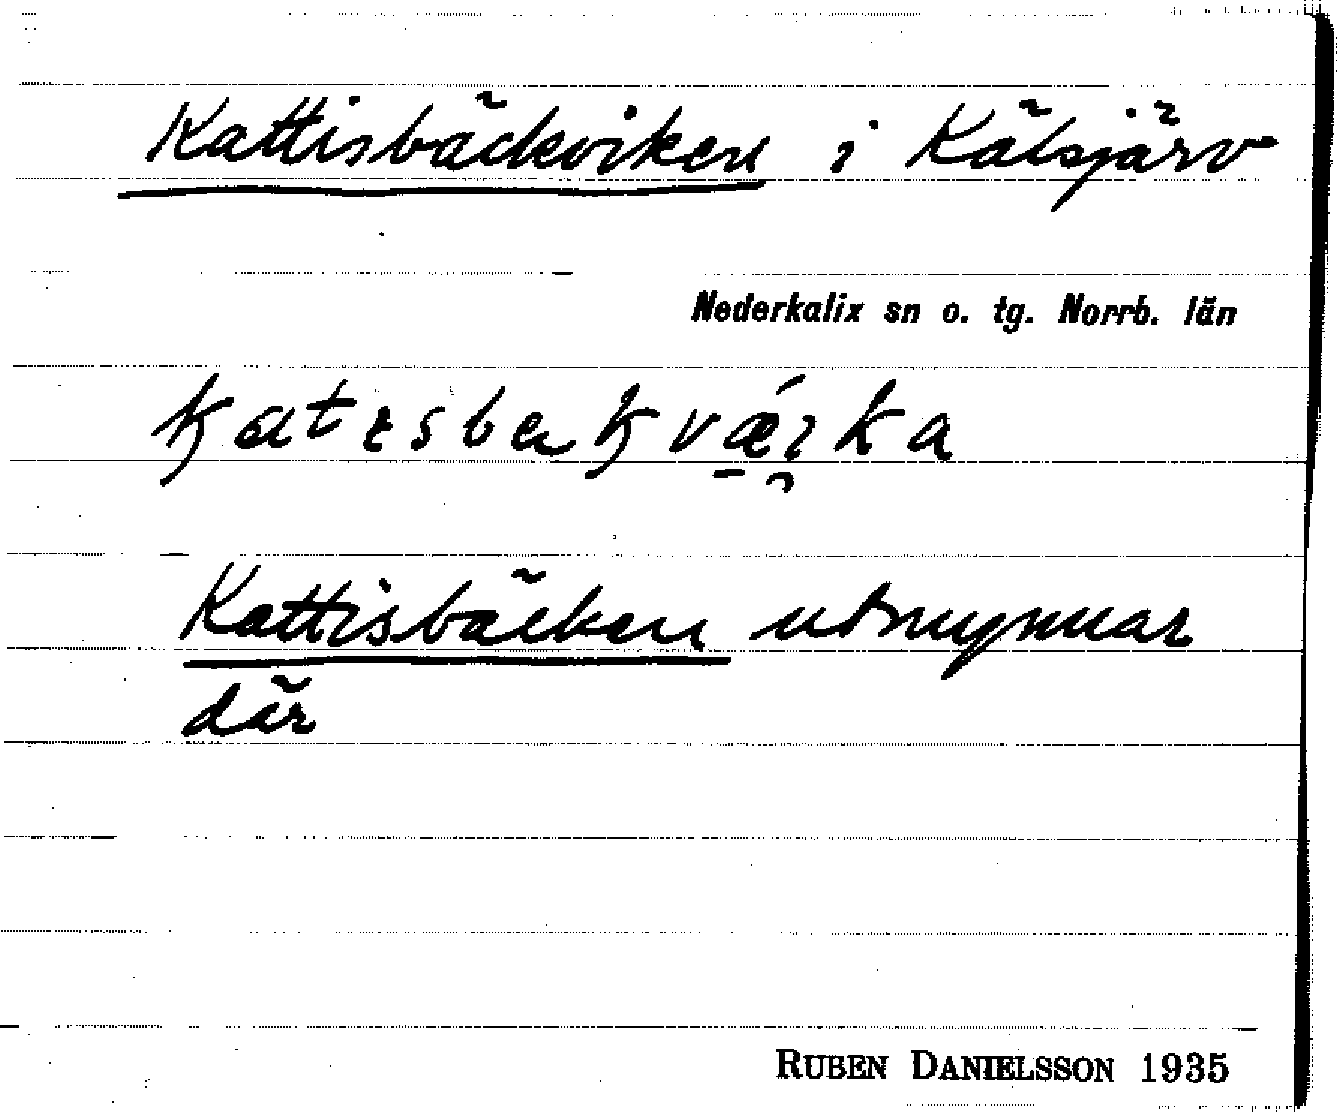 Kattisbäckviken i Kälsjärv
Nederkalix sn o. tg. Norrb. län
Kattisbäcken utmynnar
där
RUBEN DANIELSSON 1935